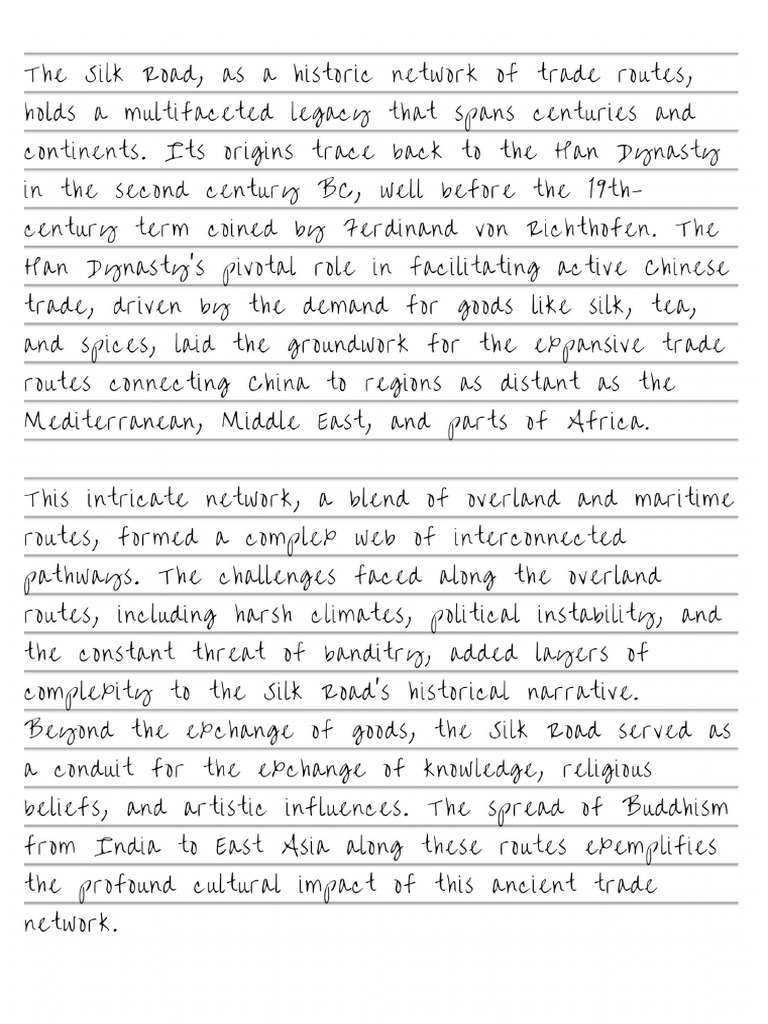 The Silk Road, as a historic network of trade routes,
holds a multifaceted legacy that spans centuries and
continents. Its origins trace back to the Han Dynasty
in the second century BC, well before the 19th-
century term coined by Ferdinand von Richthofen. The
Han Dynasty's pivotal role in facilitating active Chinese
trade, driven by the demand for goods like silk, tea,
and spices, laid the groundwork for the expansive trade
routes connecting China to regions as distant as the
Mediterranean, Middle East, and parts of Africa.
This intricate network, a blend of overland and maritime
routes, formed a complex web of interconnected
pathways. The challenges faced along the overland
routes, including harsh climates, political instability, and
the constant threat of banditry, added layers of
complexity to the Silk Road's historical narrative.
Beyond the exchange of goods, the Silk Road served as
a conduit for the exchange of knowledge, religious
beliefs, and artistic influences. The spread of Buddhism
from India to East Asia along these routes exemplifies
the profound cultural impact of this ancient trade
network.